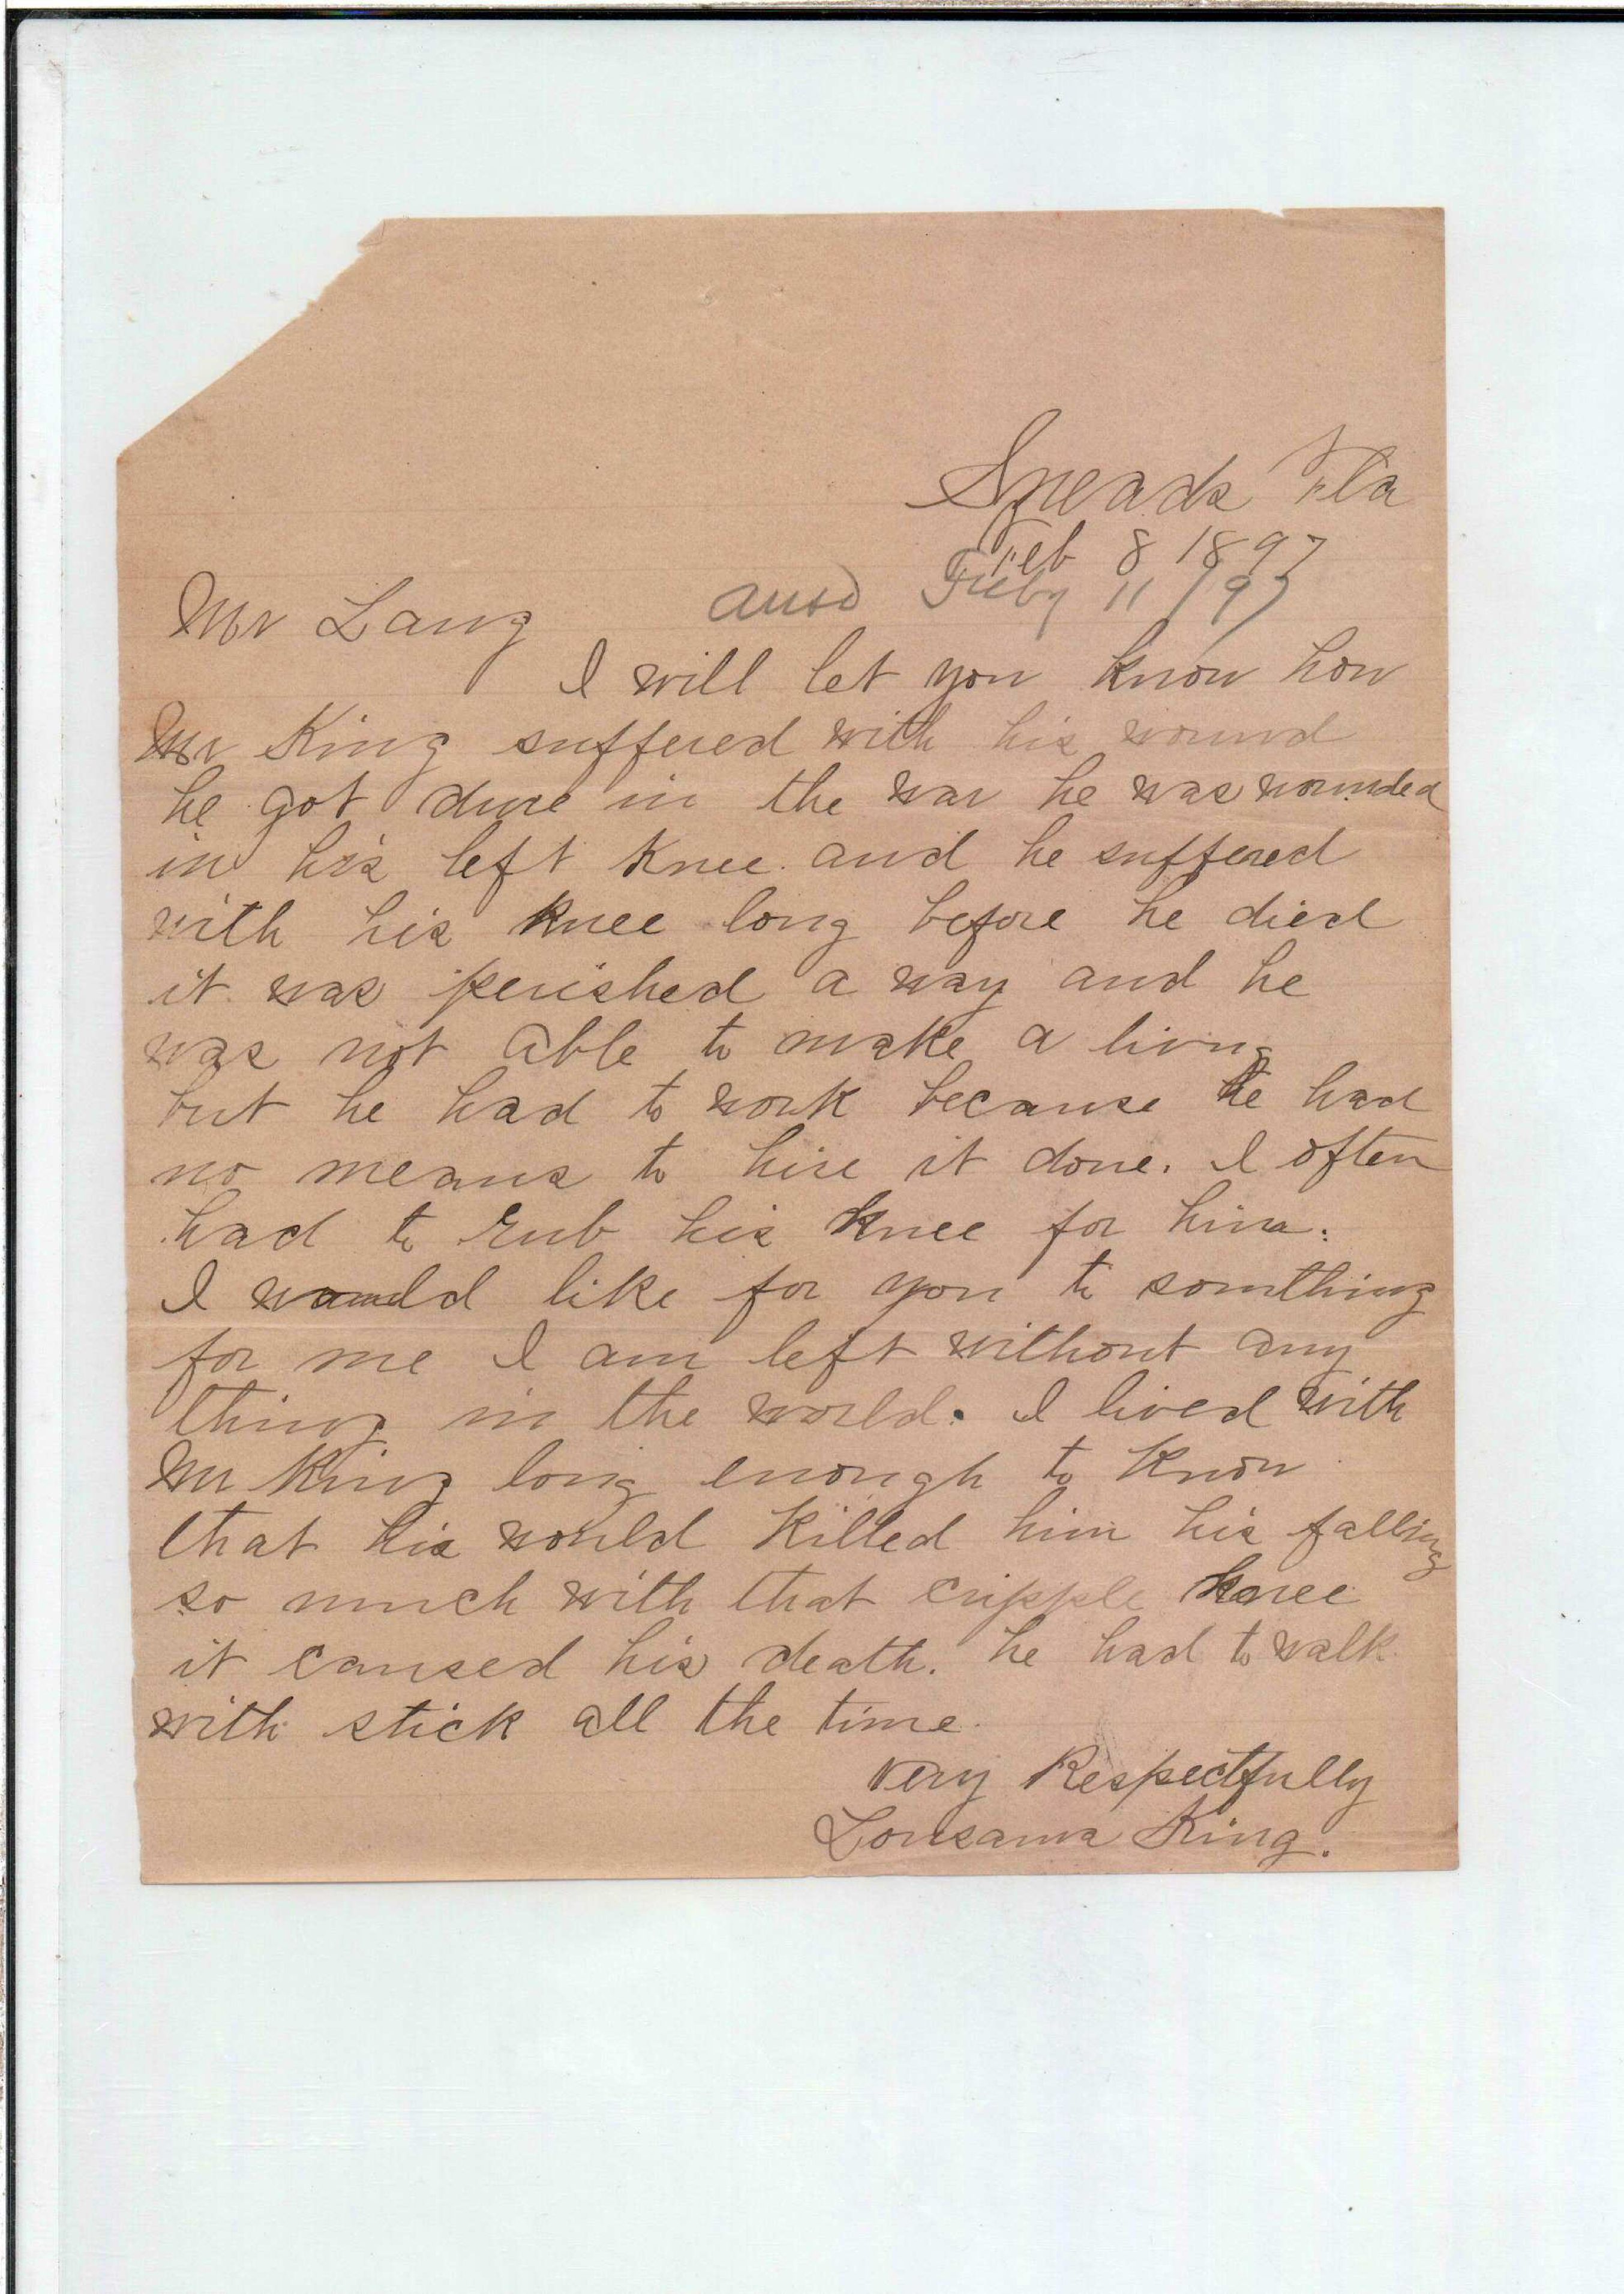 Sneads Fla
Feb 8 1897
Mr Lang ansd Feby 11/97
I will let you know how
Mr King suffered with his wound
he got dure in the war he was wounded
in his left knee and he suffered
with his knee long before he died
it was perished a way and he
was not able to make a living
but he had to work because he had
no means to hire it done. I often
had to rub his knee for him.
I would like for you to somthing
for me I am left without any
thing in the world. I lived with
Mr King long enough to know
that his would killed him his falling
so much with that cripple knee
it caused his death. he had to walk
with stick all the time.
Very Respectfully
Lousanna King.